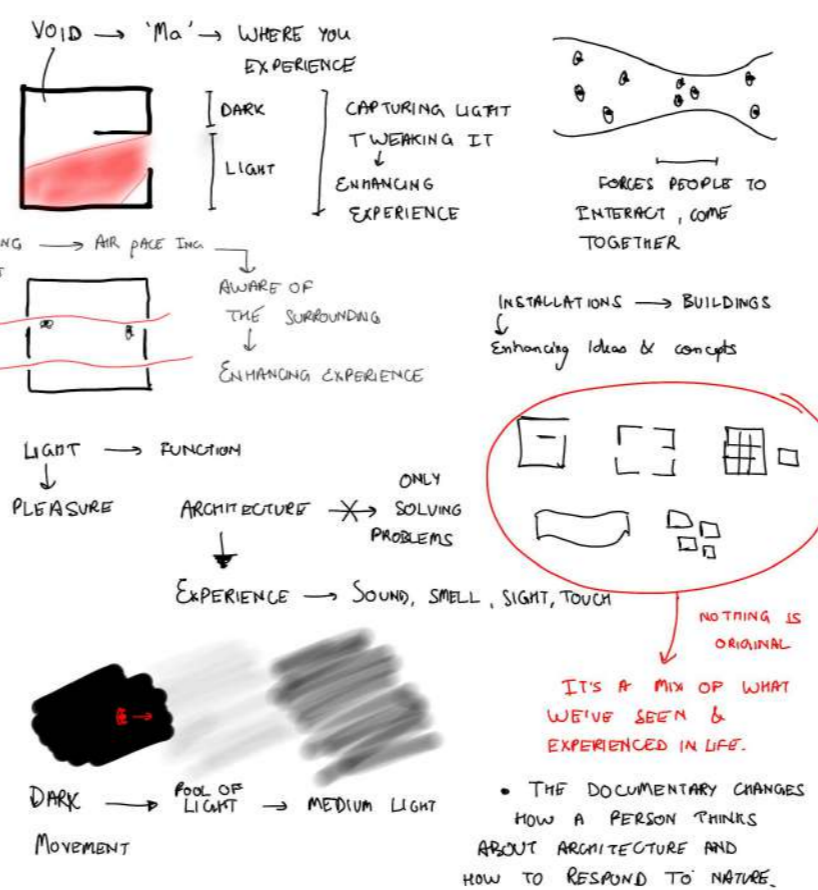 VOID → 'Ma' → WHERE YOU
EXPERIENCE
DARK
LIGHT
CAPTURING LIGHT
TWEAKING IT
ENHANCING
EXPERIENCE
FORCES PEOPLE TO
INTERACT, COME
TOGETHER
→ AIR
AWARE OF
THE SURROUNDING
ENHANCING EXPERIENCE
INSTALLATIONS → BUILDINGS
Enhancing Ideas & concepts
LIGHT → FUNCTION
PLEASURE
ARCHITECTURE
ONLY
SOLVING
PROBLEMS
EXPERIENCE → SOUND, SMELL, SIGHT, TOUCH
NOTHING IS
ORIGINAL
IT'S A MIX OF WHAT
WE'VE SEEN &
EXPERIENCED IN LIFE.
DARK → POOL OF
LIGHT → MEDIUM LIGHT
MOVEMENT
• THE DOCUMENTARY CHANGES
HOW A PERSON THINKS
ABOUT ARCHITECTURE AND
HOW TO RESPOND TO NATURE.